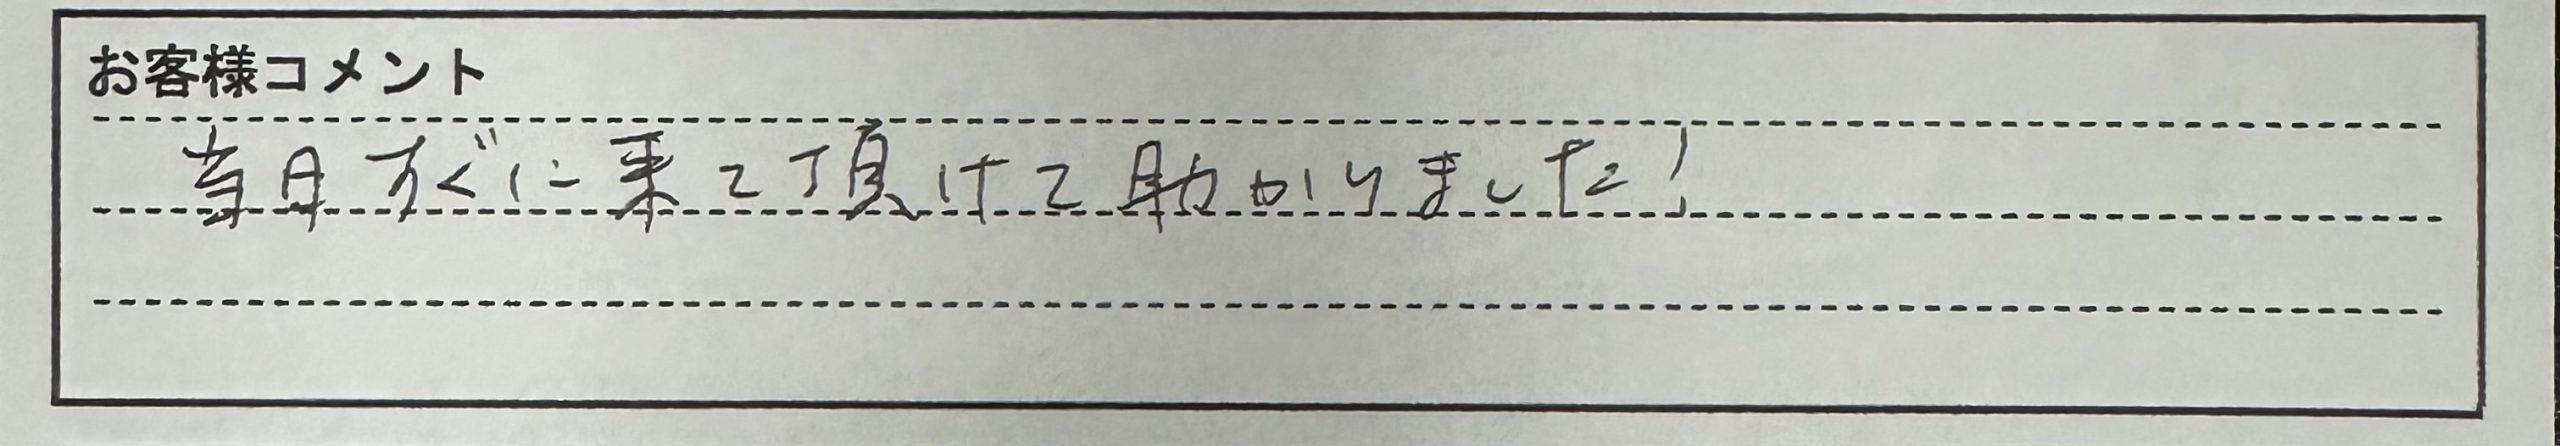 お客様コメント
当日すぐに来て頂けて助かりました!